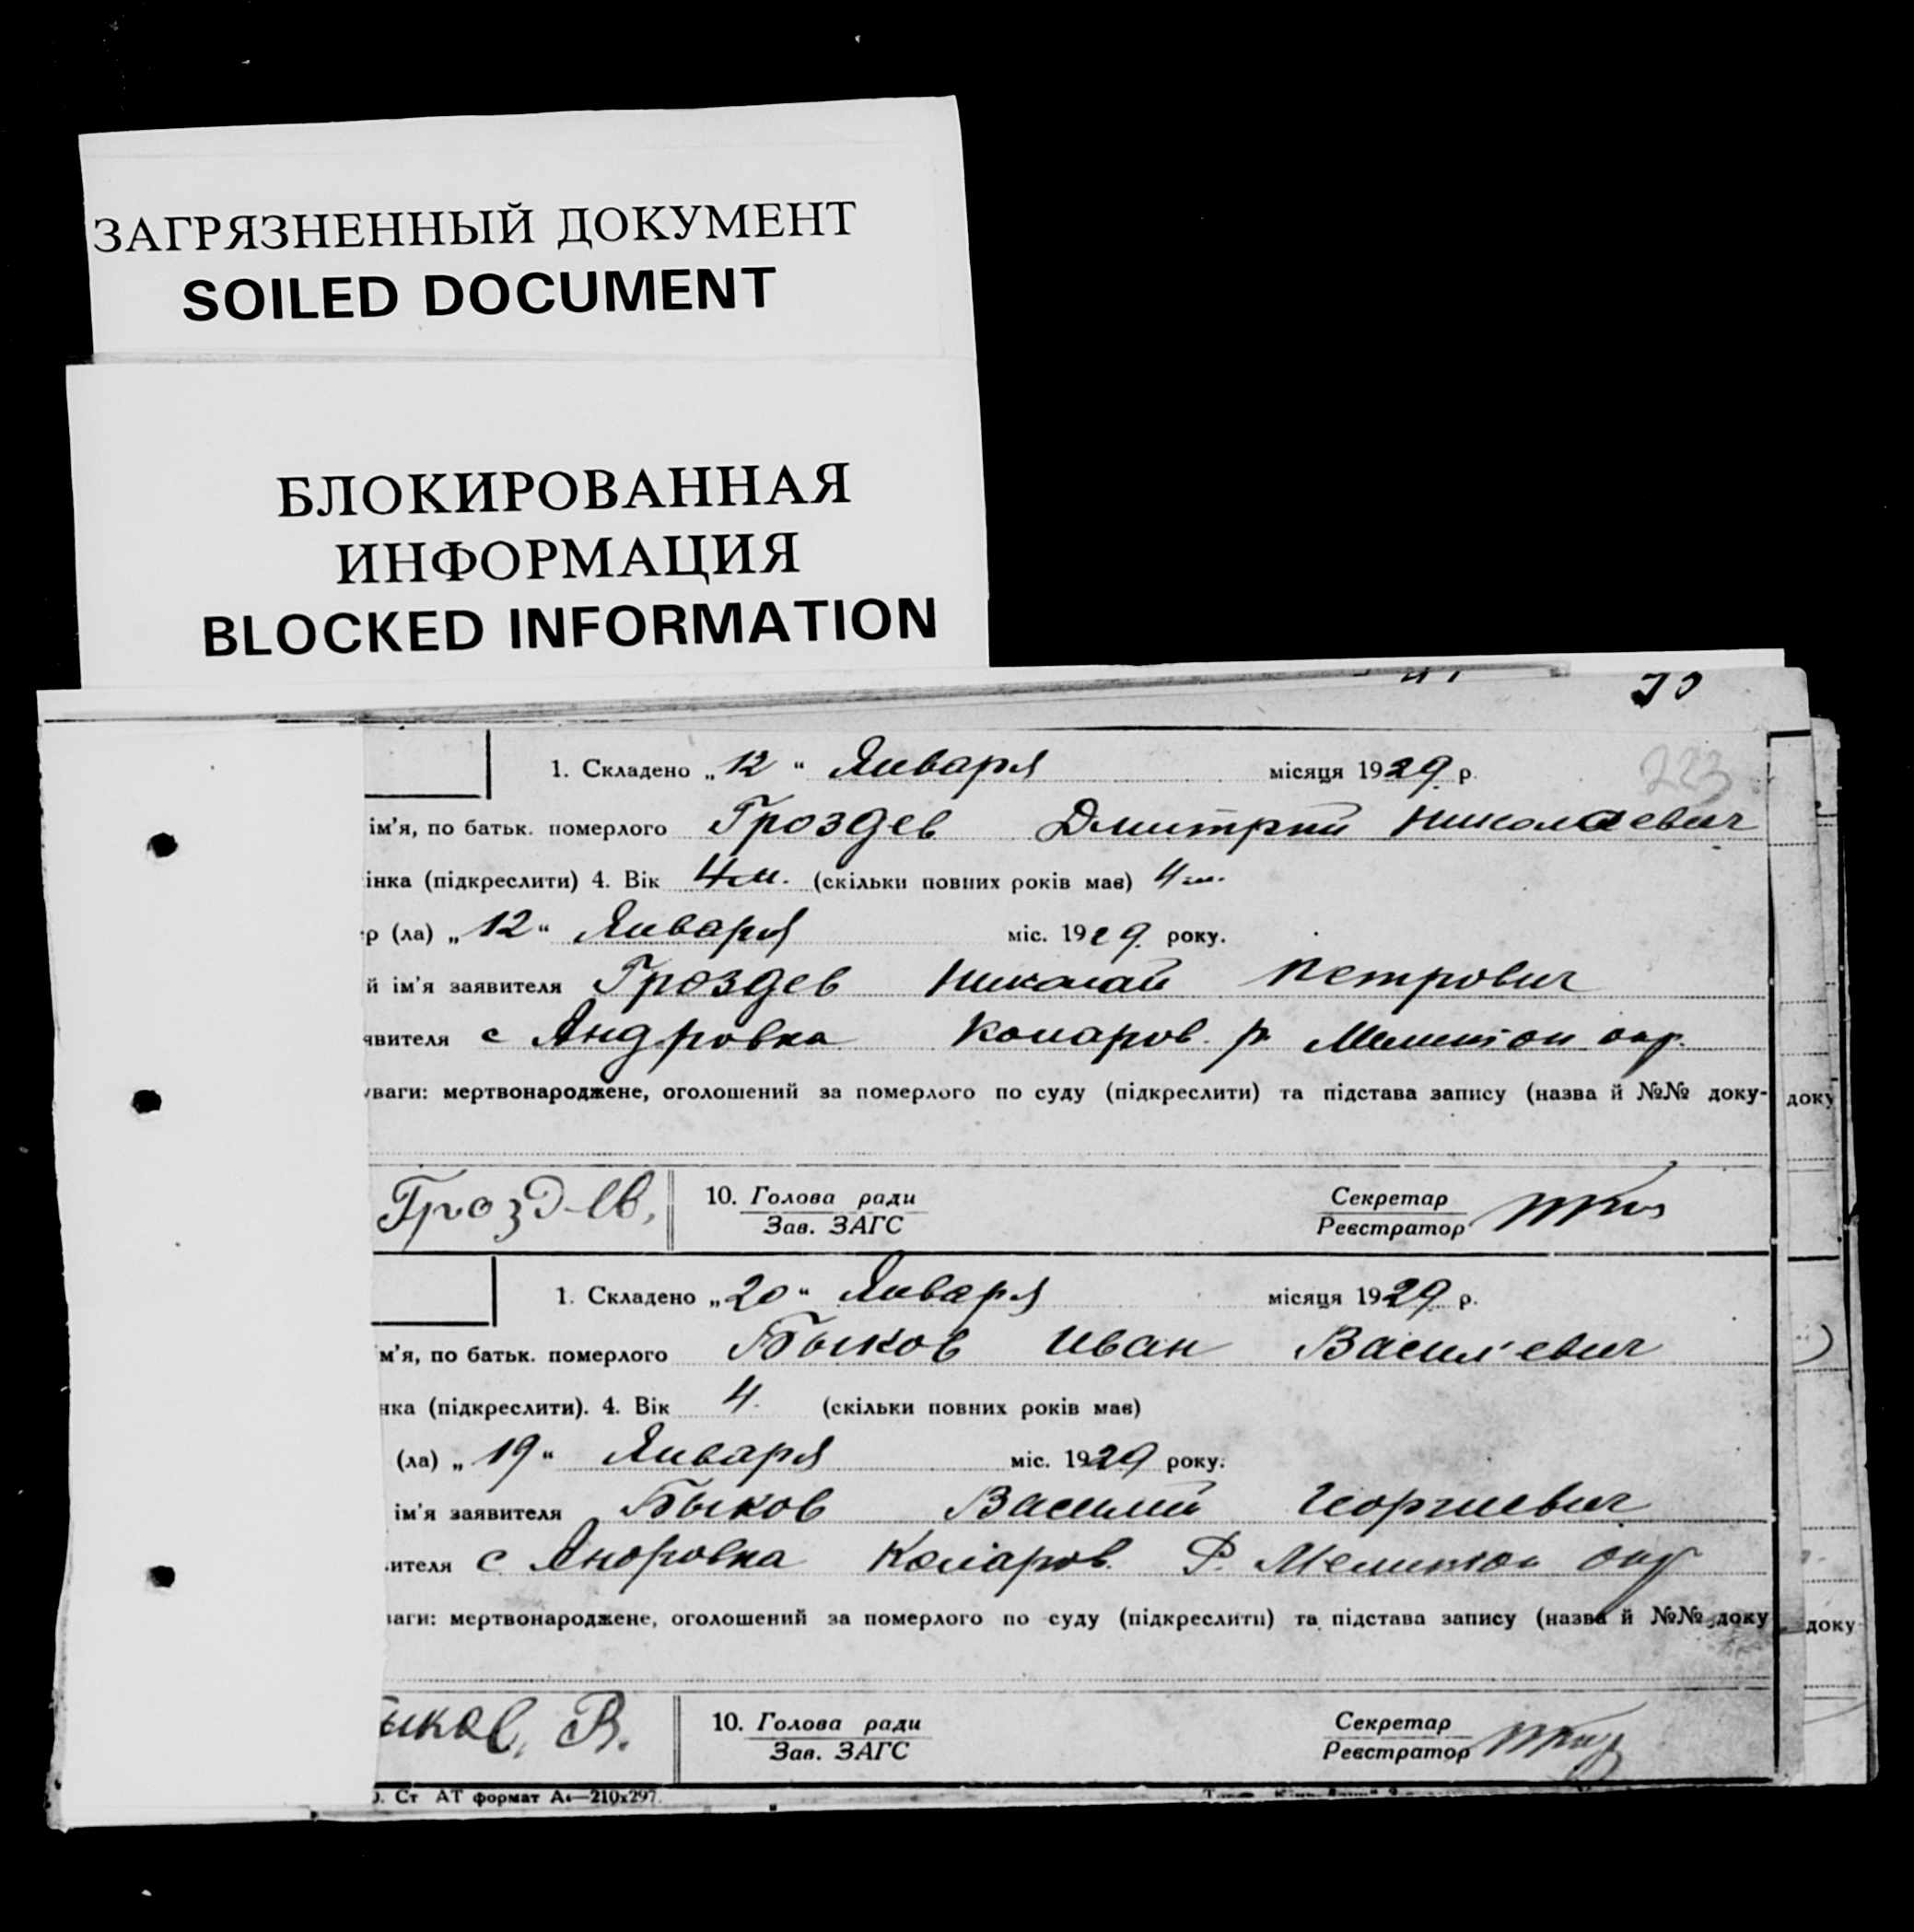 ЗАГРЯЗНЕННЫЙ ДОКУМЕНТ
SOILED DOCUMENT
БЛОКИРОВАННАЯ
ИНФОРМАЦИЯ
BLOCKED INFORMATION
223
1. Складено „12“ Января місяця 1929 р.
ім'я, по батьк. померлого Гроздев Дмитрий Николаевич
інка (підкреслити) 4. Вік 4 м. (скільки повних років має) 4 м.
р (ла) „12“ Января міс. 1929 року.
й ім'я заявителя Гроздев Николай Петрович
явителя с Андровка Коларов. р. Мелитоп окр.
уваги: мертвонароджене, оголошений за померлого по суду (підкреслити) та підстава запису (назва й №№ доку-
доку
Гроздев,
10. Голова ради
Зав. ЗАГС
Секретар
Реєстратор
1. Складено „20“ Января місяця 1929 р.
м'я, по батьк. померлого Быков Иван Васильевич
нка (підкреслити). 4. Вік 4 (скільки повних років має)
(ла) „19“ Января міс. 1929 року.
ім'я заявителя Быков Василий Георгиевич
ителя с. Андровка Коларов. Р. Мелитоп окр
ваги: мертвонароджене, оголошений за померлого по суду (підкреслити) та підстава запису (назва й №№ доку
доку
ыков, В.
10. Голова ради
Зав. ЗАГС
Секретар
Реєстратор
Ст АТ формат А4—210х297.